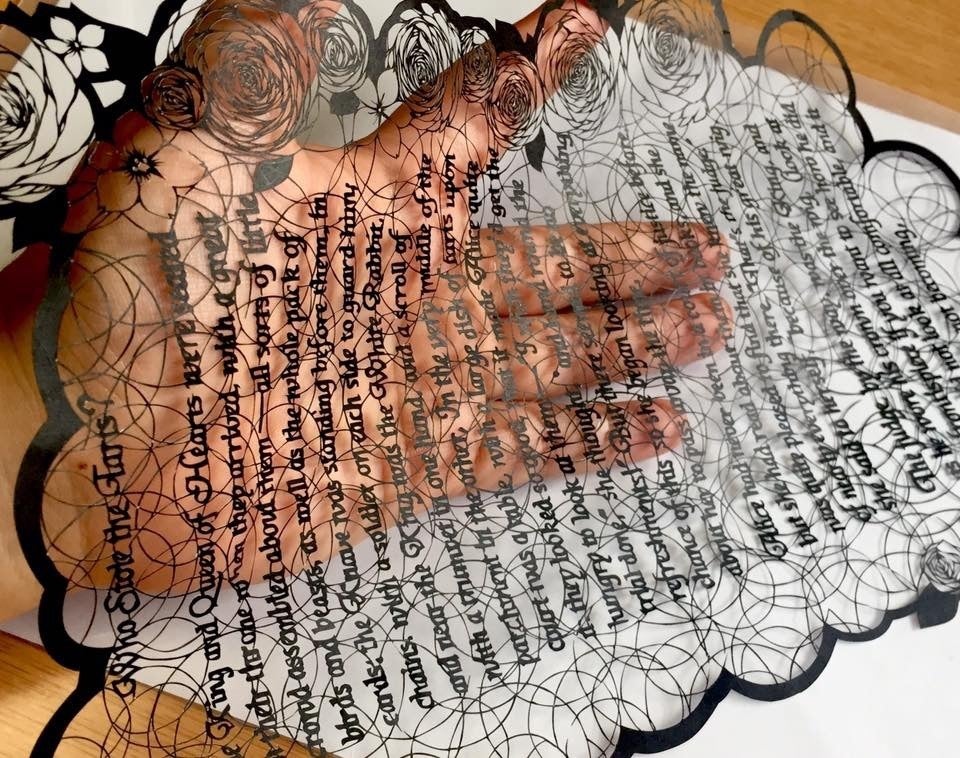 Who Stole the Tarts?
King and Queen of Hearts were seated
their throne when they arrived, with a great
crowd assembled about them—all sorts of little
birds and beasts, as well as the whole pack of
cards: the Knave was standing before them, in
chains, with a soldier on each side to guard him;
and near the King was the White Rabbit,
with a trumpet in one hand, and a scroll of
parchment in the other. In the very middle of the
court was a table, with a large dish of tarts upon
it: they looked so good, that it made Alice quite
hungry to look at them— they'd get the
trial done, she thought, and hand round the
refreshments! But there seemed to be
chance of this, so she began looking at everything
about her, to pass
Alice had never been justice before,
but she had read about and she
was quite pleased to find that the name
of nearly everything there. That's the judge,
she said to herself, because of his great wig.
The judge, by the way, was the King; and
wore his crown over the wig, look at
the if you want to see how he did
not look at all comfortable, and it
not becoming.